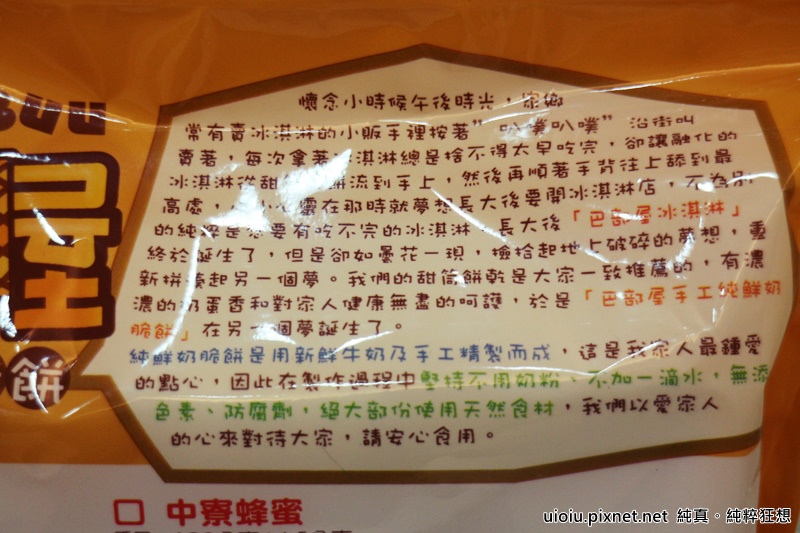 懷念小時候午後時光，家鄉
常有賣冰淇淋的小販手裡按著"叭噗叭噗" 沿街叫
賣著，每次拿著冰淇淋總是捨不得太早吃完，卻讓融化的
冰淇淋從甜筒餅流到手上，然後再順著手背往上舔到最
高處，小小心靈在那時就夢想長大後要開冰淇淋店，不為別
的純粹是想要有吃不完的冰淇淋，長大後「巴部屋冰淇淋」
終於誕生了，但是卻如曇花一現，撿拾起地上破碎的夢想，重
新拼湊起另一個夢。我們的甜筒餅乾是大家一致推薦的，有濃
濃的奶蛋香和對家人健康無盡的呵護，於是「巴部屋手工純鮮奶
脆餅」在另一個夢誕生了。
純鮮奶脆餅是用新鮮牛奶及手工精製而成，這是我家人最鍾愛
的點心，因此在製作過程中堅持不用奶粉、不加一滴水，無添
色素、防腐劑，絕大部份使用天然食材，我們以愛家人
的心來對待大家，請安心食用。
餅
□ 中寮蜂蜜
uioiu.pixnet.net 純真。純粹狂想